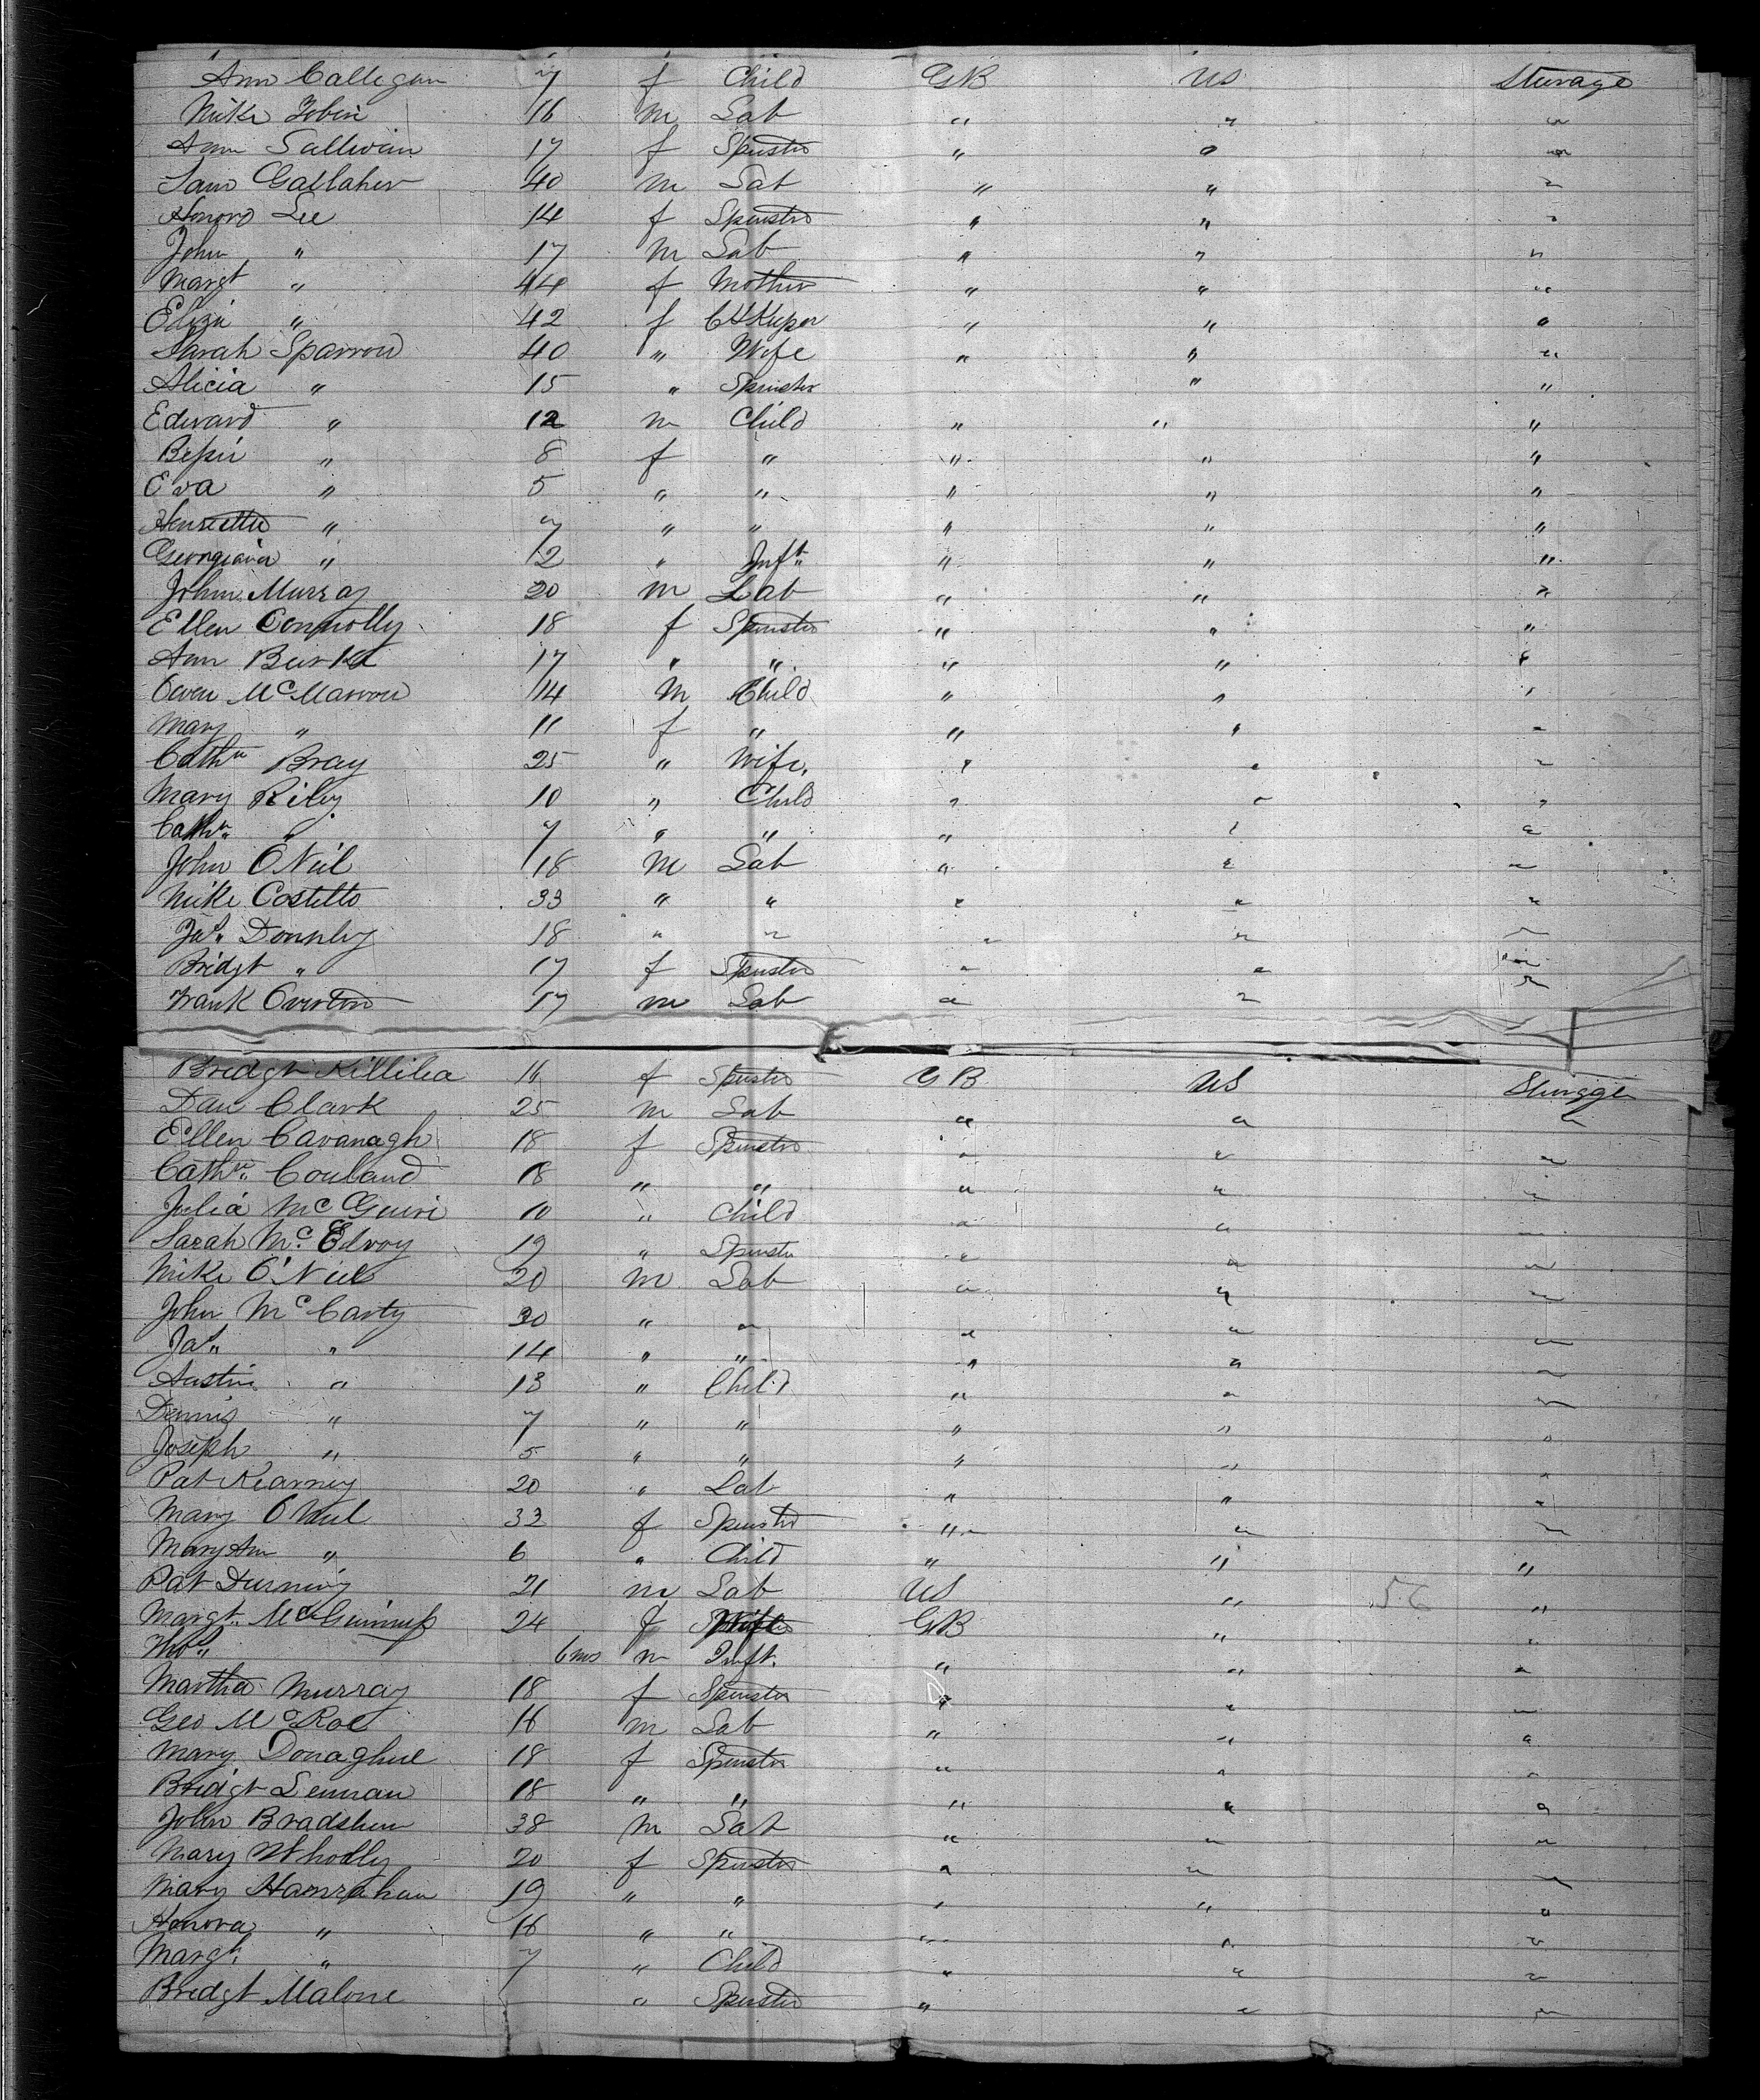 Ann Callegan 7 f Child GB US Sturage
Mike Tobin 16 m Lab " " "
Ann Sullivan 17 f Spinster " " "
Gallaher 40 m Lab " " "
Honora Lee 14 f Spinster " " "
John " 17 m Lab " " "
Margt " 44 f Mother " " "
Eliza " 42 f " " "
Sarah Sparrow 40 " Wife " " "
Alicia " 15 " Spinster " "
Edward " 12 m Child " " "
Bessie " 8 f " " " "
Eva " 5 " " " " "
Henrietta " 7 " " " " "
Georgiana " 2 " Inft " " "
John Murray 20 m Lab " " "
Ellen Connolly 18 f Spinster " " "
Ann Burke 17 " " " " "
Owen McMarrow 14 m Child " " "
Mary " 11 f " " " "
Cathn Bray 25 " Wife. " " "
Mary Riley 10 " Child " " "
Cathn " 7 " " " " "
John O Neil 18 m Lab " " "
Mike Costello 33 " " " " "
Jas Donnley 18 " " " " "
Bridgt " 17 f Spinster " " "
Frank Overton 17 m Lab " " "
Bridgt Killilea f Spinster GB US
Dan Clark 25 m Lab " " "
Ellen Cavanagh 18 f Spinster " " "
Cathn Couland 18 " " " " "
Julia McGuire 10 " Child " " "
Sarah McElvoy 19 " Spinster " " "
Mike O'Niel 20 m Lab " " "
John McCarty " " " " "
Jas " 14 " " " " "
Austin " 13 " Child " " "
Dennis " 7 " " " " "
Joseph " 5 " " " " "
Pat Kearney 20 " Lab " " "
Mary O Neil 33 f Spinster " " "
Mary Ann " 6 " Child " " "
Pat Durning 21 m Lab US " 56 "
Margt McGuinness 24 f Wife GB " "
Thos " 6 mos m Inft. " " "
Martha Murray 18 f Spinster " " "
Geo McRoe 16 m Lab " " "
Mary Donaghue 18 f Spinster " " "
Bridgt Lennan 18 " " " " "
John Bradshaw 38 m Lab " " "
Mary Whodly 20 f Spinster " " "
Mary Hanrahan 19 " " " " "
Honora " 16 " " " " "
Margt " 7 " Child " " "
Bridgt Malone " Spinster " " "